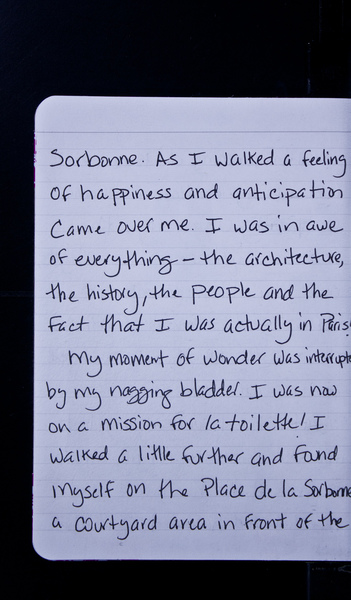 Sorbonne. As I walked a feeling
of happiness and anticipation
came over me. I was in awe
of everything – the architecture,
the history, the people and the
fact that I was actually in Paris!
My moment of wonder was interrupte
by my nagging bladder. I was now
on a mission for la toilette! I
walked a little further and found
myself on the Place de la Sorbonne
a courtyard area in front of the